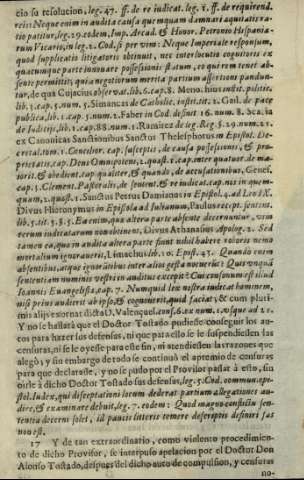 cio sa resolucion, leg. 47. ff. de re iudicat. leg. 1. ff. de requirend.
reis: Neque enim in audita causa quemquam damnari aquitatis ra-
tio patitur, leg. 29. eodem, Imp. Arcad. & Honor. Petronio Hispania-
rum Vicario, in leg. 2. Cod. si per vim: Neque Imperiale responsum,
quod supplicatis litigatoris obtinuit, nec interlocutio cognitoris ex
quacumque parte innouare possessionis statum, eo qui rem tenet ab-
sente permittit; quia negotiorum merita partium assertione pandun-
tur, de qua Cujacius obseruat. lib. 6. cap. 8. Menochius instit. politic.
lib. 3. cap. 5. num. 5. Simancas de Catholic. instit. tit. 2. Gail. de pace
publica, lib. 1. cap. 5. num. 2. Faber in Cod. definit 16. num. 8. Scacia
de Iuditijs, lib. 1. cap. 88. num. 1. Ramirez de leg. Reg. §. 29. num. 21.
ex Canonicis Sanctionibus Sanctus Thelesphotus in Epistol. Decretal.
tom. 1. Concilior. cap. susceptis, de causa possessionis, & pro-
prietatis, cap. Deus Omnipotens, 2. quæst. 1. cap. inter quatuor, de ma-
iorit. & obedient. cap. qualiter, & quando, de accusationibus, Genes.
cap. 3. Clement. Pastoralis, de sentent. & re iudicat. cap. nos in quem-
quam, 2. quæst. 1. Sanctus Petrus Damianus in Epistol. 4. ad Leo IX.
Divus Hieronymus in Epistola ad Iulianum, Paulus recept. sentent.
lib. 5. tit. 5. §. 5. Ea enim, qua altera parte absente decernuntur, vim
rerum iudicatarum non obtinent, Divus Athanasius Apolog. 2. Sed
tamen ea, qua in audita altera parte fiunt nihil habere roboris nemo
mortalium ignorauerit, Limachus lib. 10. Epist. 43. Quando enim
absentibus, atque ignorātibus inter alios gesta nocuerūt? Qui vnquā
sententiam numinis vestri in auditus excepit? Cui consonum est illud
Ioannis Euangelista, cap. 7. Numquid lex nostra iudicat hominem,
nisi prius audierit ab ipso, & cognouerit, quid faciat; & cum pluri-
mis alijs exornat dicta D. Valençuel. cons. 6. ex num. 1. vsque ad 20.
Y no se hallarà que el Doctor Tostado pudiesse conseguir los au-
tos para hazer sus defensas, ni que para ello se le suspendiessen las
censuras, ni se le oyesse para este fin, ni atendiessen las razones que
alegò; y sin embargo de todo se continuò el apremio de censuras
para que declarasse, y no se pudo por el Provisor passar à esto, sin
oirle à dicho Doctor Tostado sus defensas, leg. 3. Cod. commun. epi-
stol. Iudex, qui disceptationi locum dederat partium allegationes au-
dire, & examinare debuit, leg. 7. eodem: Quod magno consilio sen-
tentia decerni solet, id paucis litteris temere descriptis definiri fas
non est.
17 Y de tan extraordinario, como violento procedimien-
to de dicho Provisor, se interpuso apelacion por el Doctor Don
Alonso Tostado, despues del dicho auto de compulsion, y censuras
no-